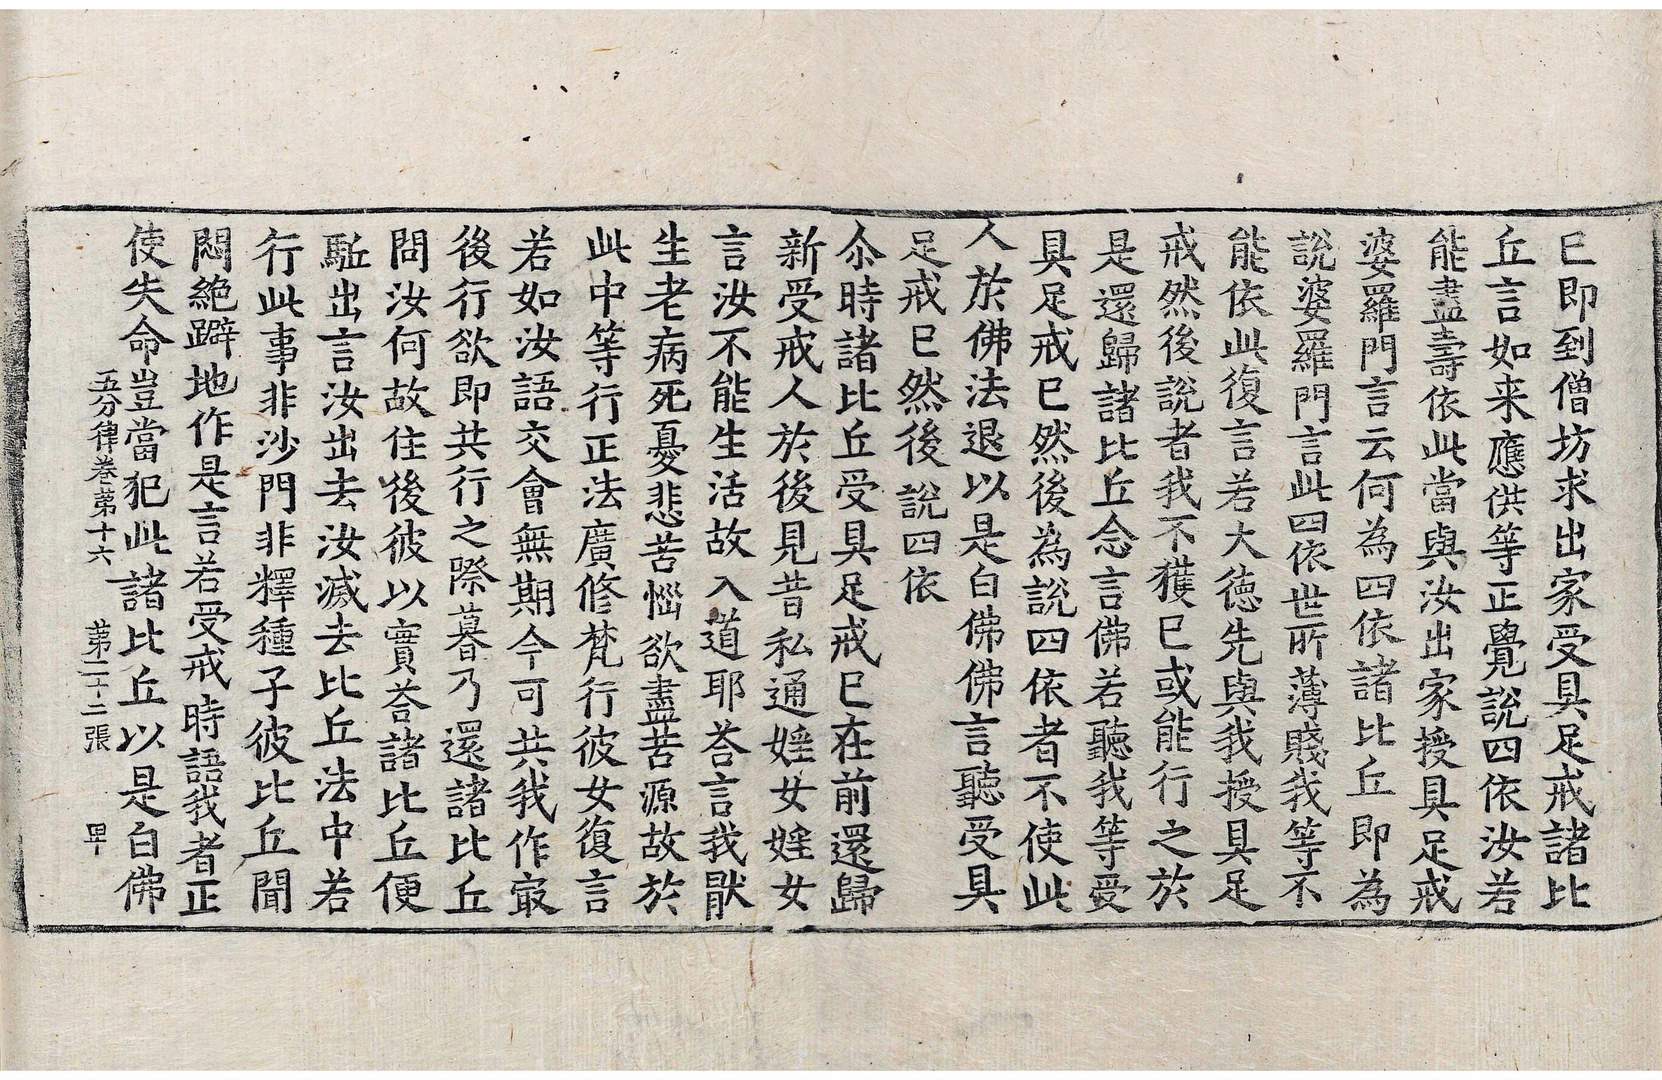 已即到僧坊求出家受具足戒諸比
丘言如来應供等正覺說四依汝若
能盡壽依此當與汝出家授具足戒
婆羅門言云何為四依諸比丘即為
說婆羅門言此四依世所薄賤我等不
能依此復言若大徳先與我授具足
戒然後說者我不獲已或能行之於
是還歸諸比丘念言佛若聽我等受
具足戒已然後為說四依者不使此
人於佛法退以是白佛佛言聽受具
足戒已然後說四依
尒時諸比丘受具足戒已在前還歸
新受戒人於後見昔私通婬女婬女
言汝不能生活故入道耶荅言我猒
生老病死憂悲苦惱欲盡苦源故於
此中等行正法廣修梵行彼女復言
若如汝語交會無期今可共我作冣
後行欲即共行之際暮乃還諸比丘
問汝何故住後彼以實荅諸比丘便
駈出言汝出去汝滅去比丘法中若
行此事非沙門非釋種子彼比丘聞
悶絶躃地作是言若受戒時語我者正
使失命豈當犯此諸比丘以是白佛
五分律卷苐十六 苐二十二張 甲